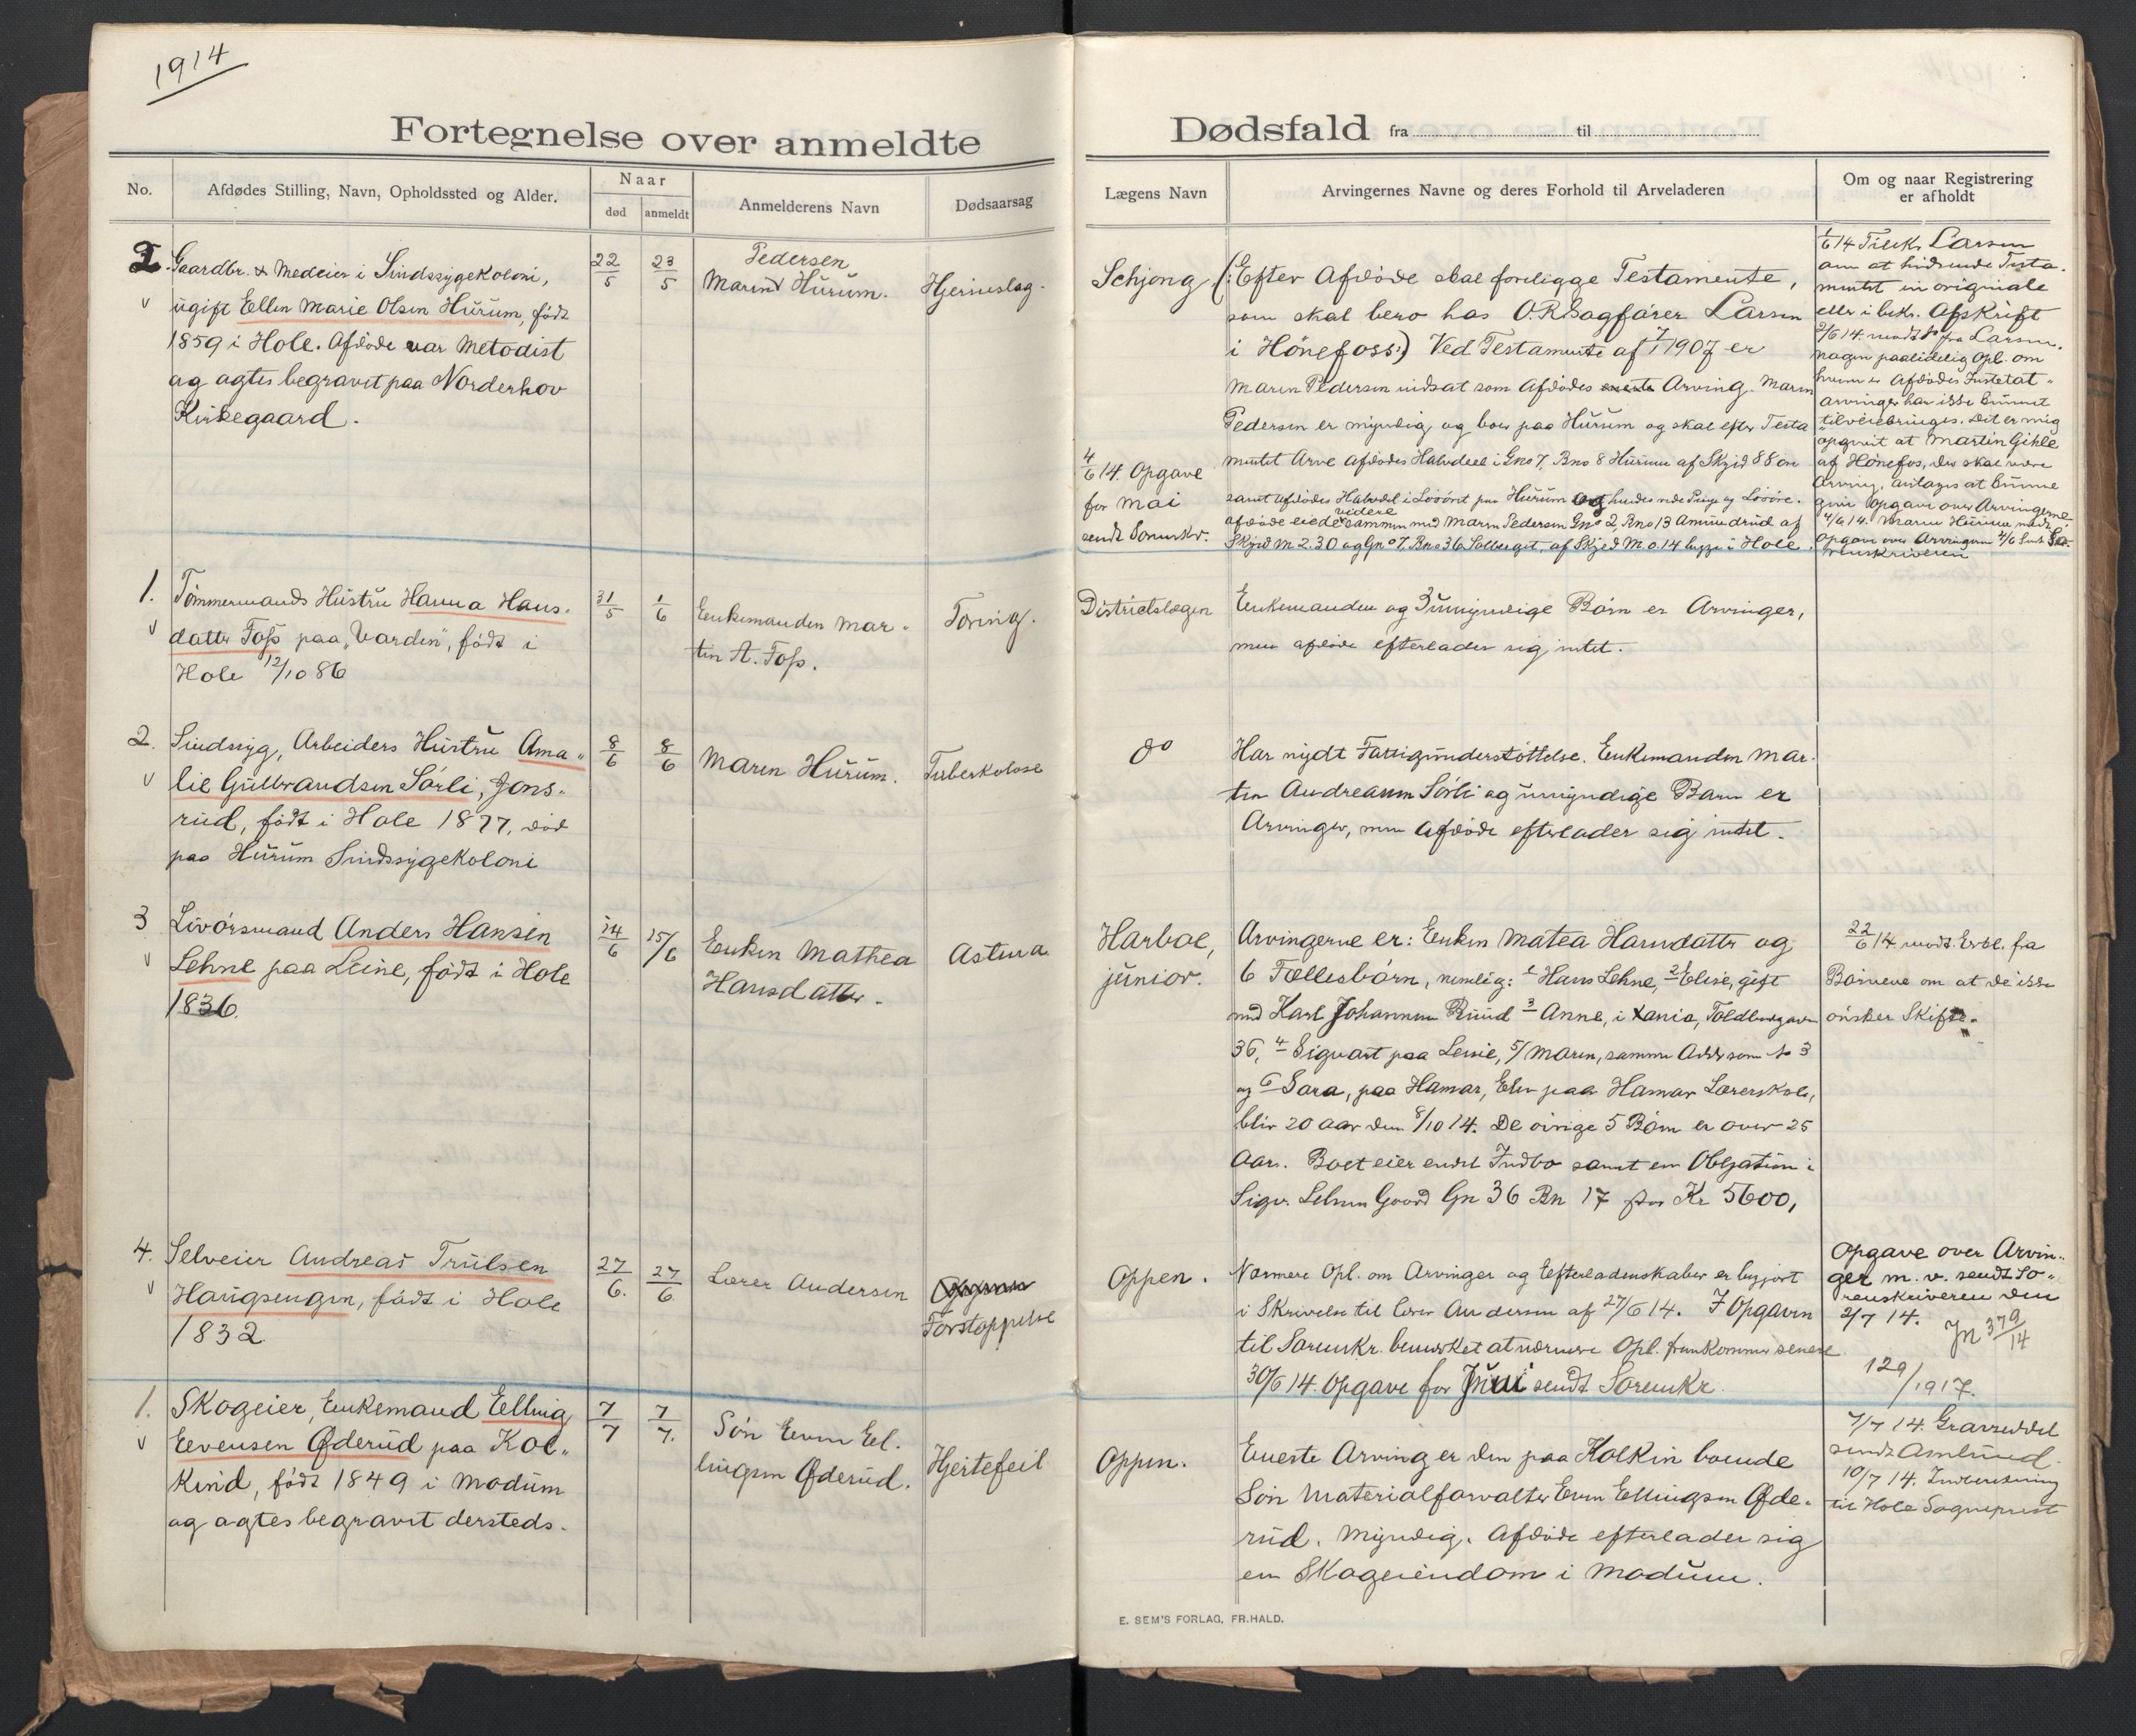 1914
Fortegnelse over anmeldte
No.
Afdødes Stilling, Navn, Opholdssted og Alder.
Naar
død
anmeldt
Anmelderens Navn
Dødsaarsag
Gaardbr. & Medeier i Sindssygekoloni,
ugift Ellen Marie Olsen Hurum, født
1859 i Hole. Afdøde var Metodist
og agtes begravet paa Norderhov
Kirkegaard.
22/5
23/5
Pedersen
Maren Hurum.
Hjerneslag.
1.
Tømmermands Hustru Hanna Hans-
datter Foss paa "Varden", født i
Hole 12/10 86
31/5
1/6
Enkemanden Mar-
tin A. Foss.
Tæring.
2.
Sindssyg, Arbeiders Hustru Ama-
lie Gulbrandsen Sørli, Jons-
rud, født i Hole 1877, død
paa Hurum Sindssygekoloni
8/6
8/6
Maren Hurum.
Tuberkolose
3
Livørsmand Anders Hansen
Lehne paa Leine, født i Hole
1836.
14/6
15/6
Enken Mathea
Hansdatter.
Astma
4.
Selveier Andreas Trulsen
Haugsengen, født i Hole
1832
27/6.
27/6
Lærer Andersen
Forstoppelse
1.
Skogeier, Enkemand Elling
Evensen Øderud paa Kol-
kind, født 1849 i Modum
og agtes begravet dersteds.
7/7
7/7.
Søn Even El-
lingsen Øderud.
Hjertefeil
Dødsfald fra til
Lægens Navn
Arvingernes Navne og deres Forhold til Arveladeren
Om og naar Registrering
er afholdt
Schjong
4/6 14. Opgave
for Mai
sendt Sorenskr.
(: Efter Afdøde skal foreligge Testamente,
som skal bero hos O.R.Sagfører Larsen
i Hönefoss:) Ved Testamente af 7/1 1907 er
Maren Pedersen indsat som Afdødes Arving. Maren
Pedersen er myndig og boer paa Hurum og skal efter Testa
mentet Arve Afdødes Halvdeel i Gno 7, Bno 8 Hurum af Skyld 88 øre
samt afdødes Halvdel i Løsøret paa Hurum og hendes rede Penge og Løsøre.
afdøde eiede videre sammen med Maren Pedersen Gno 2, Bno 13 Amundrud af
Skyld M 2.30 og Gno 7, Bno 36 Solberget, af Skyld M 0.14 begge i Hole.
1/6 14 Tilskr. Larsen
om at hidsende Testa-
mentet in originale
eller i bekr. Afskrift
2/6 14. modt fra Larsen.
nogen paalidelig Opl. om
hvem er Afdødes Intestat-
arvinger har ikke kunnet
tilveiebringes. Det er mig
opgivit at Martin Gihle
af Hönefos, der skal være
Arving, antages at kunne
give Opgave over Arvingerne
4/6 14. Maren Hurum
Opgave over Arvingerne 4/6 Sendt So-
renskriveren
Districtslægen
Enkemanden og 3 umyndige Børn er Arvinger,
men afdøde efterlader sig intet.
do
Har nydt Fattigunderstøttelse. Enkemanden Mar-
tin Andreassen Sørli og umyndige Barn er
Arvinger, men Afdøde efterlader sig intet.
Harboe,
junior.
Arvingerne er: Enken Matea Hansdatter og
6 Fællesbørn, nemlig: 1 Hans Lehne, 2 Elise, gift
med Karl Johannesen Ruud 3 Anne, i Xania, Toldbodgaden
36, 4 Sigvart paa Leine, 5/ Maren, samme Addr som No 3
og 6 Sara, paa Hamar, Elev paa Hamar Lærerskole,
blir 20 Aar den 8/10 14. De øvrige 5 Børn er over 25
Aar. Boet eier endel Indbo samt en Obligation i
Sigv. Lehnes Gaard Gn 36 Bn 17 stor Kr 5600,
22/6 14 modt. Erkl. fra
Børnene om at de ikke
ønsker Skifte.
Oppen.
Nærmere Opl. om Arvinger og Efterladenskaber er begjært
i Skrivelse til Lærer Andersen af 27/6 14. I Opgaven
til Sorenskr. bemerket at nærmere Opl. fremkommer senere
30/6 14. Opgave for Juni sendt Sorenskr.
Opgave over Arvin-
ger m. v. sendt So-
renskriveren den
2/7 14.
Jn 379/14
129/1917.
Oppen.
Eneste Arving er den paa Kolkin boende
Søn Materialforvalter Even Ellingsen Øde-
rud. Myndig. Afdøde efterlader sig
en Skogeiendom i Modum.
7/7 14. Gravseddel
sendt Amlund.
10/7 14. Indberetning
til Hole Sogneprest
E. SEM'S FORLAG, FR.HALD.